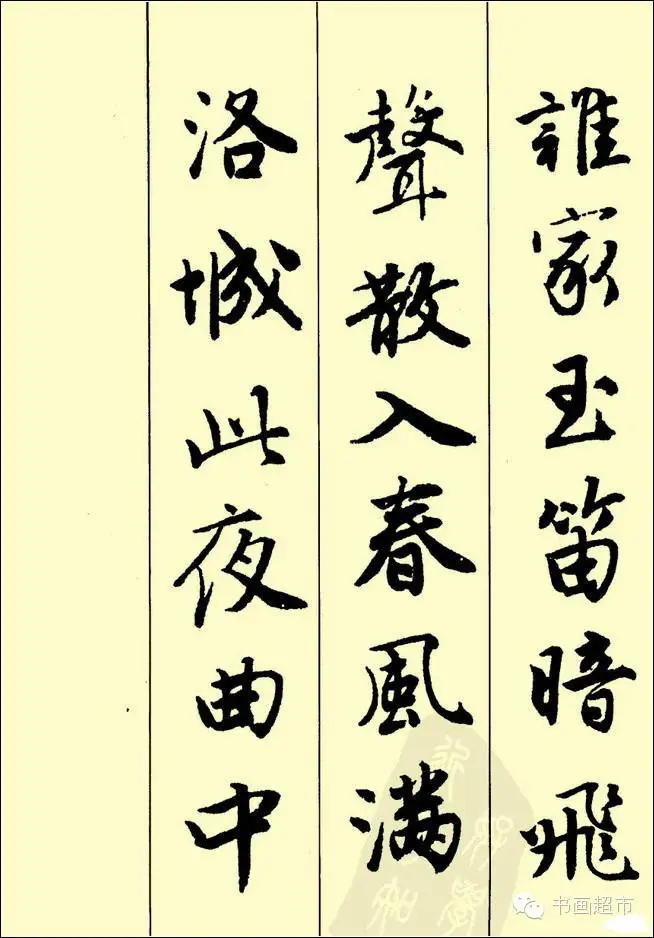 誰家玉笛暗飛
聲散入春風滿
洛城此夜曲中
书画超市